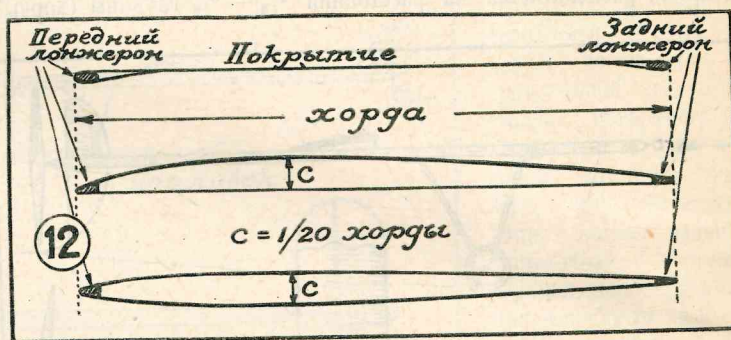 Передний
лонжерон
Покрытие
Задний
лонжерон
хорда
с
12
с = 1/20 хорды
с